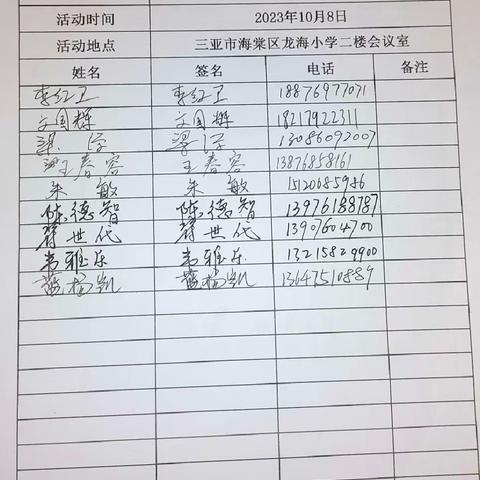 活动时间 2023年10月8日
活动地点 三亚市海棠区龙海小学二楼会议室
姓名 签名 电话 备注
李红卫 李红卫 18876977071
文国辉 文国辉 18217922311
梁 13086092007
王春容 王春容 13876858161
朱敏 朱敏 15120685986
陈德智 陈德智 13976188787
符世代 符世代 13907604700
韦雅乐 韦雅乐 13215829900
蓝杨凯 蓝杨凯 13647510889